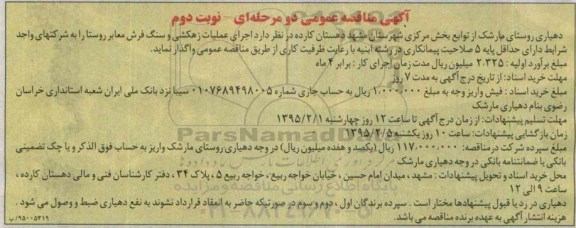 آگهی مناقصه عمومی دو مرحله‌ای - نوبت دوم
دهیاری روستای مارشک از توابع بخش مرکزی شهرستان مشهد دهستان کارده در نظر دارد اجرای عملیات زهکشی و سنگ فرش معابر روستا را به شرکتهای واجد
شرایط دارای حداقل پایه ۵ صلاحیت پیمانکاری در رشته ابنیه با رعایت ظرفیت کاری از طریق مناقصه عمومی واگذار نماید.
مبلغ برآورد اولیه : ۲،۳۲۵ میلیون ریال مدت زمان اجرای کار : برابر ۴ ماه
مهلت خرید اسناد : از تاریخ درج آگهی به مدت ۷ روز
مبلغ خرید اسناد : فیش واریز وجه به مبلغ ۱،۰۰۰،۰۰۰ ریال به حساب جاری شماره ۰۱۰۷۶۸۹۴۹۸۰۰۵ سیبا نزد بانک ملی ایران شعبه استانداری خراسان
رضوی بنام دهیاری مارشک
مهلت تسلیم پیشنهادات: از زمان درج آگهی تا ساعت ۱۲ روز چهارشنبه ۱۳۹۵/۲/۱
زمان بازگشایی پیشنهادات: ساعت ۱۰ روز یکشنبه ۱۳۹۵/۲/۵
مبلغ سپرده شرکت در مناقصه: ۱۱۷،۰۰۰،۰۰۰ ریال (یکصد و هفده میلیون ریال) در وجه دهیاری روستای مارشک واریز به حساب فوق الذکر و یا چک تضمینی
بانکی یا ضمانتنامه بانکی در وجه دهیاری مارشک
محل خرید اسناد و تحویل پیشنهادات : مشهد ، میدان امام حسین ، خیابان خواجه ربیع ، خواجه ربیع ۵ ، پلاک ۳۴ ، دفتر کارشناسان فنی و مالی دهستان کارده ،
ساعت ۹ الی ۱۲
دهیاری در رد یا قبول پیشنهادها مختار است . سپرده برندگان اول ، دوم و سوم در صورتیکه حاضر به انعقاد قرارداد نشوند به نفع دهیاری ضبط و وصول می شود .
هزینه انتشار آگهی به عهده برنده مناقصه می باشد.
۹۵۰۰۵۳۱۹/پ
ParsNamadData
پایگاه اطلاع رسانی مناقصه و مزایده
۰۲۱-۸۸۳۴۹۶۷۰-۵